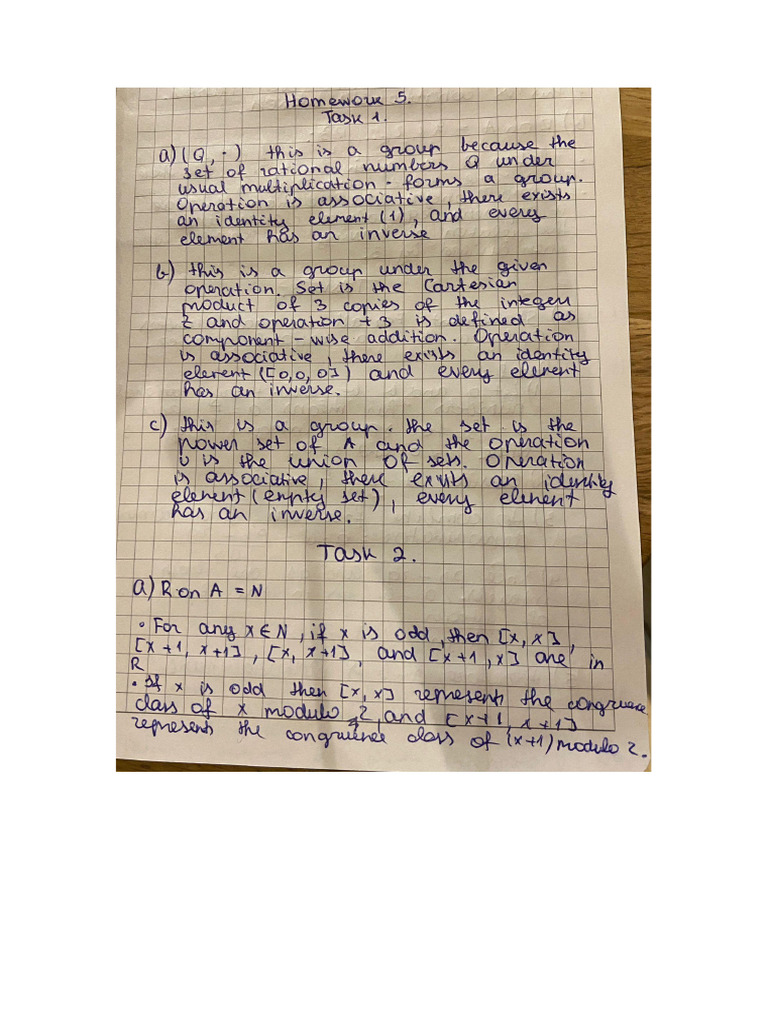 Homework 5.
Task 1.
a) (Q, ·) this is a group because the
set of rational numbers Q under
usual multiplication · forms a group.
Operation is associative, there exists
an identity element (1), and every
element has an inverse
b) this is a group under the given
operation. Set is the Cartesian
product of 3 copies of the integers
Z and operation +3 is defined as
component-wise addition. Operation
is associative, there exists an identity
element ([0,0,0]) and every element
has an inverse.
c) this is a group. the set is the
power set of A and the operation
∪ is the union of sets. Operation
is associative, there exists an identity
element (empty set), every element
has an inverse.
Task 2.
a) R on A = N
• For any x ∈ N, if x is odd, then [x, x],
[x+1, x+1], [x, x+1], and [x+1, x] are in
R
• If x is odd then [x, x] represents the congruence
class of x modulo 2, and [x+1, x+1]
represents the congruence class of (x+1) modulo 2.